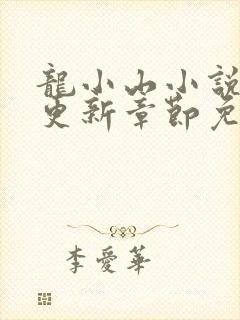 龍小山小説
更新章節免
李愛華